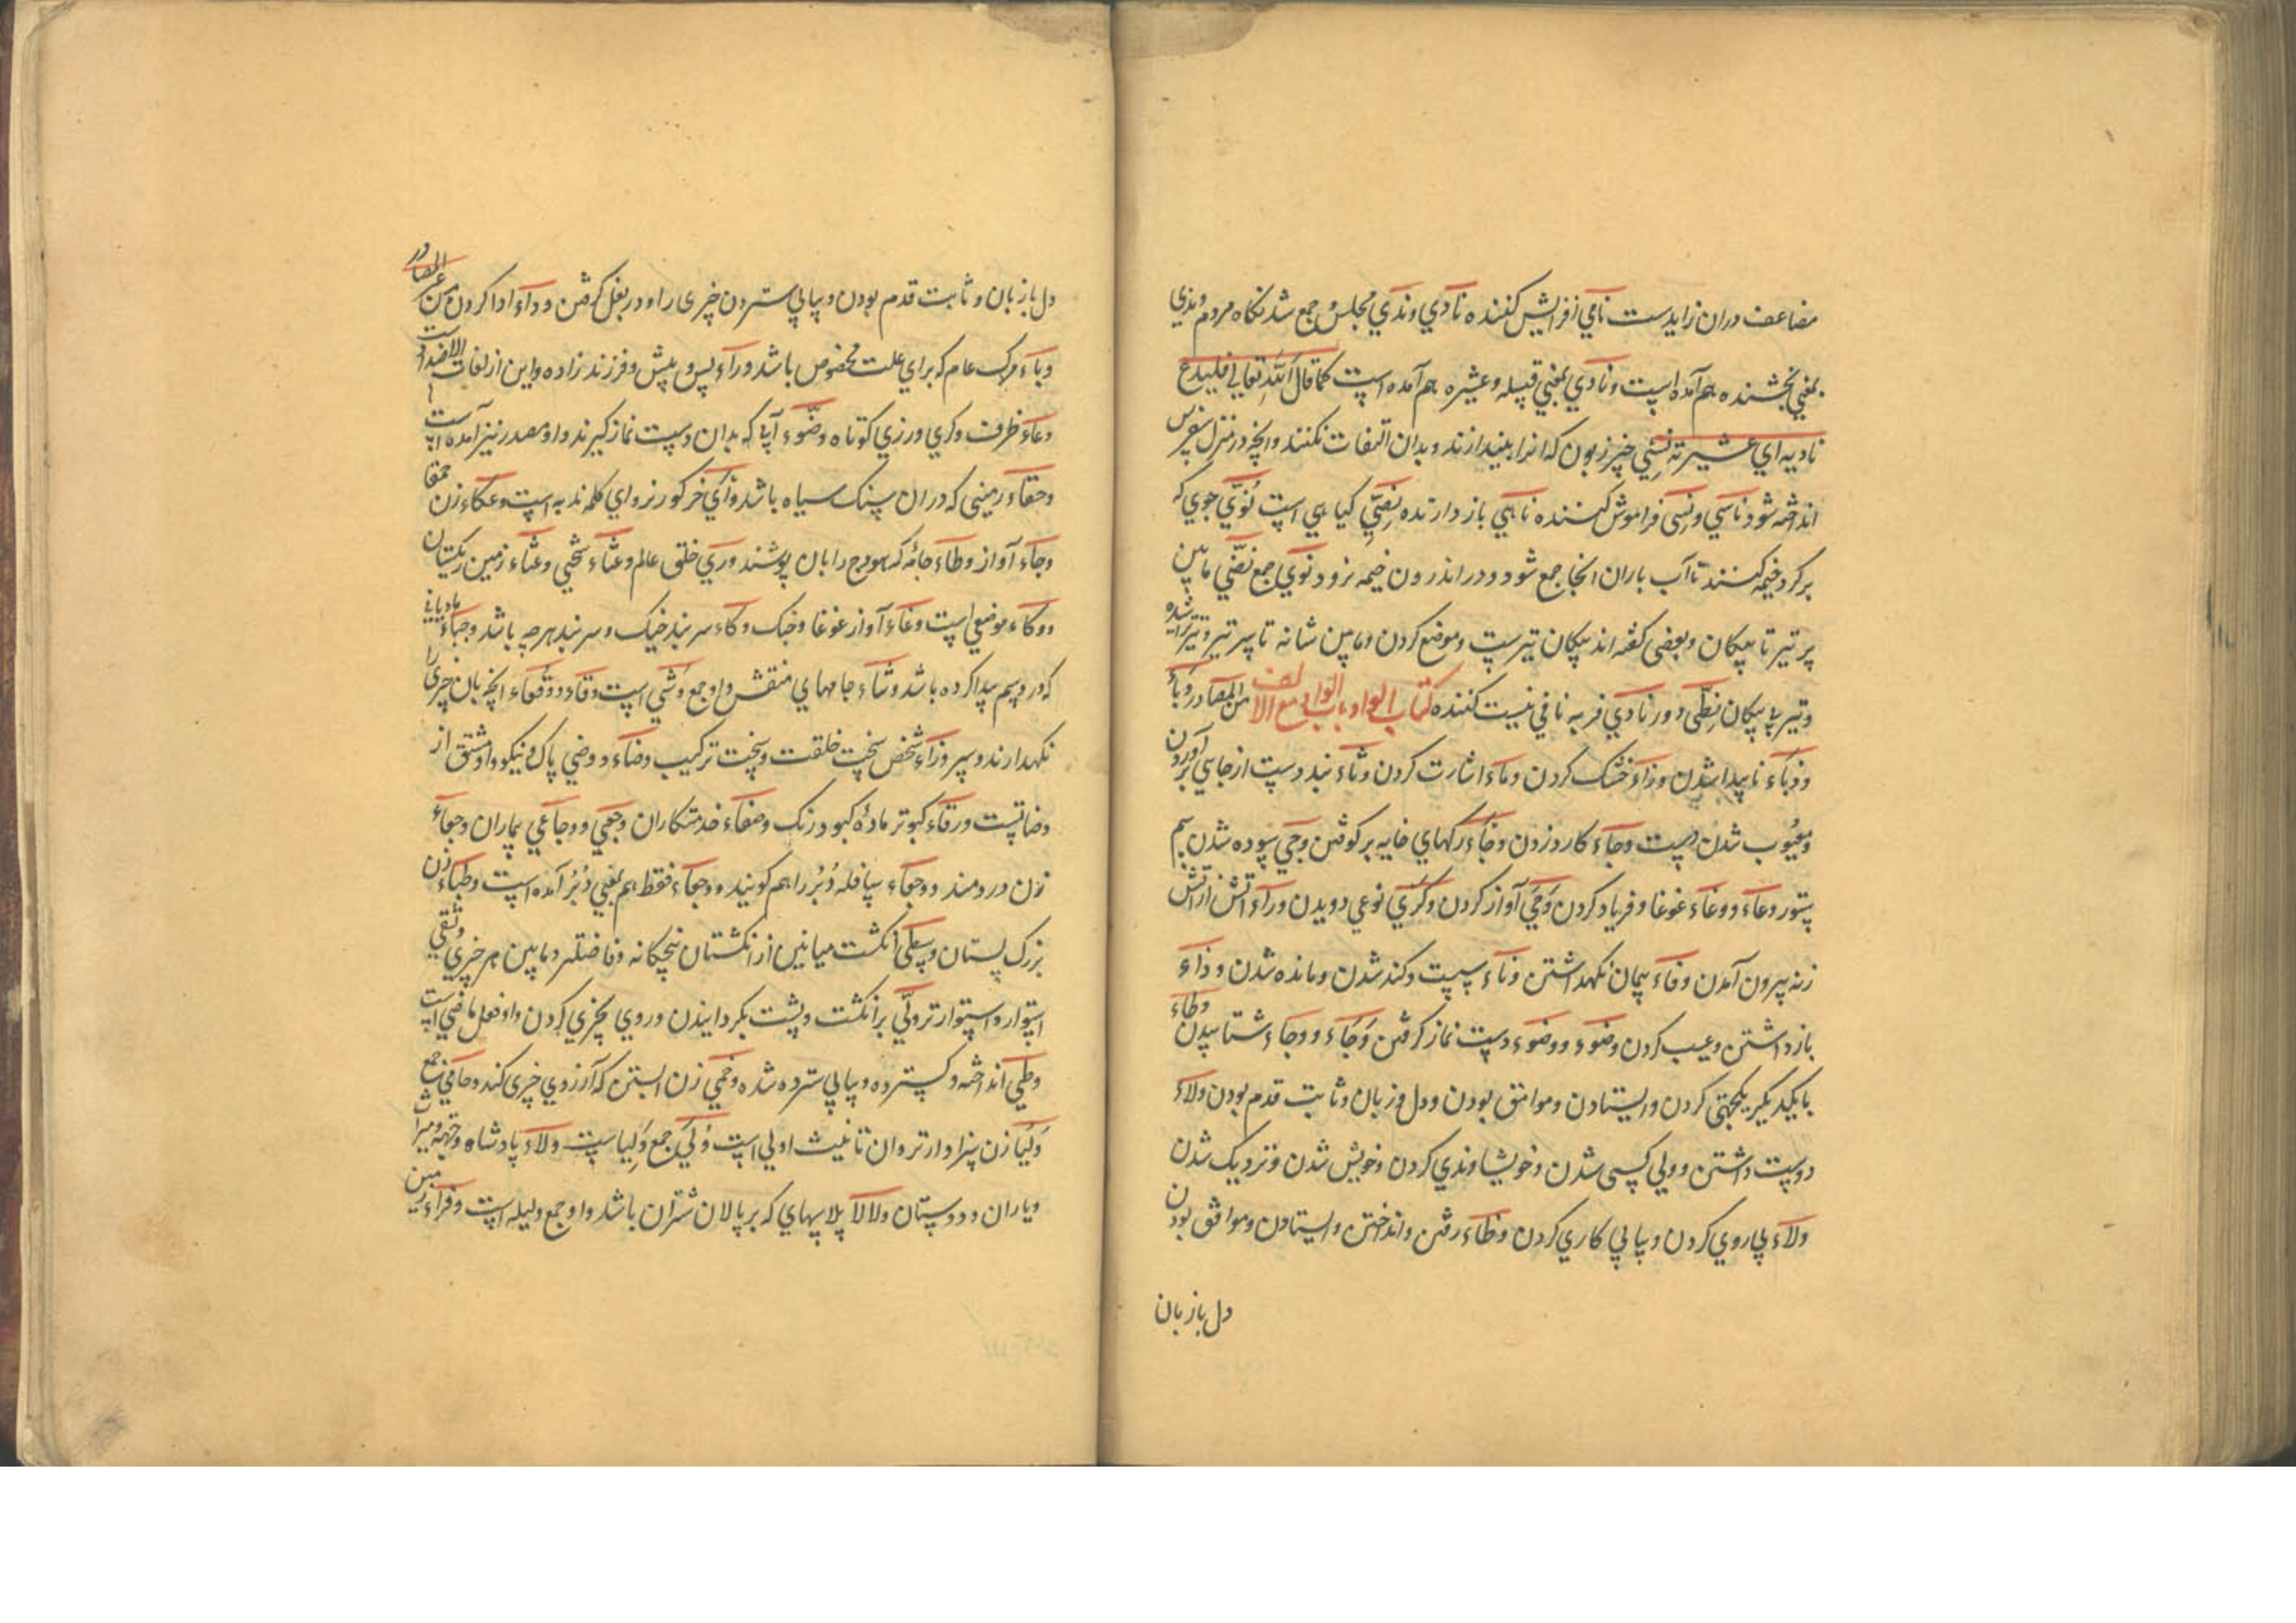 مضاعف دران زاید ست نامي افزایش کننده نادي وندي مجلس و جمع شدنکاه مردم وندي
بمعني بخشنده هم آمده است ونادي بمعني قبیله وعشیره هم آمده است کما قال الله تعالی فلیدع
نادیه اي عشیرته نسي چیز زبون که انرا بیندازند و بدان التفات نکنند وانچه در منزل سفرس
انداخته شود ناسي ونسی فراموش کننده ناهي باز دارنده نصي کیاهي است نؤي جوي که
بر کرد خیمه کنند تا آب باران انجا جمع شود ودر اندرون خیمه نرود نوي جمع نضي مابین
پر تیر تا پیکان وبعضی کفته اند پیکان تیر ست وموضع کردن ومابین شانه تا سر تیر وتیر تراشیده
وتیر بي پیکان نطي دور نادي فربه نافي نیست کننده کتاب الواو باب الواو مع الالف من المصادر وباء
وذباء ناپیدا شدن وزاء خشک کردن وماء اشارت کردن وثاء بند دست از جاي بر آوردن
ومعیوب شدن دست وجاء کارد زدن وجاء رکهاي خایه بر کوفتن وجي سوده شدن سم
ستور وعاء ووغاء غوغا وفریاد کردن وحي آواز کردن وکري نوعي دویدن وراء اتش از اتش
زنه بیرون آمدن وفاء پیمان نکهداشتن وناء سست وکند شدن ومانده شدن وذاء
باز داشتن وعیب کردن وضوء ووضوء دست نماز کرفتن وجاء ووجاء شتابیدن وطاء
با یکدیکر یکجهتي کردن وایستادن وموافق بودن ودل وزبان وثابت قدم بودن ولاء
دوست داشتن وولي کسی شدن وخویشاوندي کردن وخویش شدن ونزدیک شدن
ولاء پیاروي کردن وپیاپي کاري کردن وطاء رفتن وانداختن وایستادن وموافق بودن
دل با زبان
دل با زبان وثابت قدم بودن وپیاپي ستردن چیزی را ودر بغل کرفتن وداء ادا کردن من غیر المصادر
وباء مرک عام که براي علت مخصوص باشد وراء پس وپیش وفرزند زاده واین از لغات الاضداد است
وعاء ظرف وکري ورزي کوتاه وضوء آبي که بدان دست نماز کیرند واو مصدر نیز آمده است
وحقاء زمینی که دران سنک سیاه باشد وأي خر کور نر وواي کلمه ندبه است وعکاء زن حمقا
وجاء آواز وطاء جائه که هودج را بان پوشند وري خلق عالم وعثاء سختي وعثاء زمین ریکستان
ووکاء موضعي است وغاء آواز غوغا وجنک وکاء سر بند خیک وسر بند هرچه باشد وجباء مادیاني
که ورم سم پیدا کرده باشد وشاء جامهاي منقش واو جمع وشي است وقاء ووقاء انچه بان چیزی را
نکهدارند وسپر وزاء شخص سخت خلقت وسخت ترکیب وضاء ووضي پاک ونیکو واو مشتق از
وضاتست ورقاء کبوتر مادۀ کبود رنک وصفاء خدمتکاران وجعي ووجاعي بیماران وجعاء
زن دردمند ووجعاء سافله دبر را هم کویند ووجعاء فقط هم بمعني دبر آمده است وطباء زن
بزرک پستان وسطی انکشت میانین از انکشتان پنجکانه وفاضلتر ومابین هر چیزي وثقي
استوار واستوار تر ولي بر انکشت وپشت بکردانیدن وروي بچیزي کردن واو فعل ماضي است
وطي انداخته وکسترده وپیاپي سترده شده وحمي زن ابستن که آرزوي چیزی کند وحامي جمع
ولیا زن سزاوارتر وان تانیث اولي است ولي جمع ولیا ست ولاء پادشاه وجهة ومیراث
ویاران ودوستان ولالا پلاسهاي که بر پالان شتران باشد واو جمع ولیله است وفراء زمین